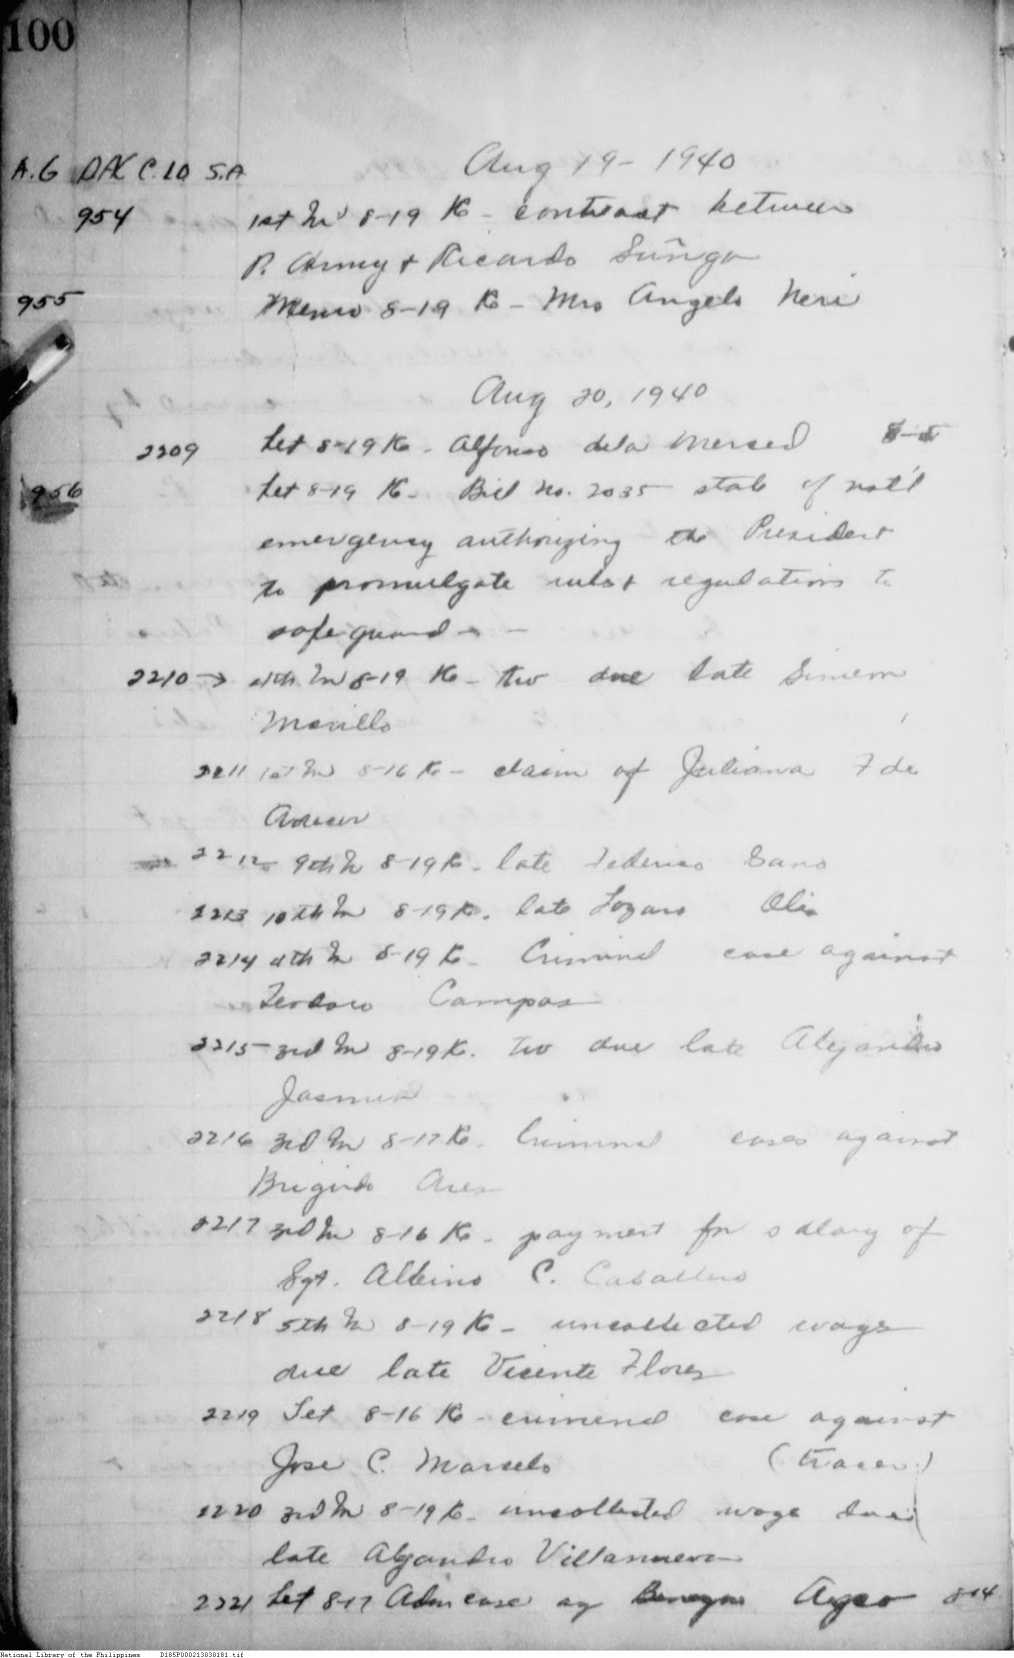 100
A.G DAC C.10 S.A Aug 19- 1940
954 1st In' 8-19 K - contract between
P. Army & Ricardo Suñga
955 Memo 8-19 K - Mrs Angela Neri
Aug 20, 1940
2209 Let 8-19 K - Alfonso dela Merced 8-5
956 Let 8-19 K - Bill No. 2035 state of nat'l
emergency authorizing the President
to promulgate rules & regulations to
safeguard - -
2210 → 4th In 8-19 K - two due late Simeon
2211 1st In 8-16 K - claim of Juliana F de
2212 9th In 8-19 K - late Federico Sano
2213 10th In 8-19 K - late Lozaro
2214 4th In 8-19 K - Criminal case against
Teodoro Campos
2215 3rd In 8-19 K. two due late Alejandro
Jasmin
2216 3rd In 8-17 K - Criminal cases against
Brigido
2217 3rd In 8-16 K - payment for salary of
Sgt. Albino C. Caballero
2218 5th In 8-19 K - uncollected wage
due late Vicente Flores
2219 Let 8-16 K - criminal case against
Jose C. Marcelo (tracer)
2220 3rd In 8-19 K - uncollected wage due
late Alejandro Villanueva
2221 Let 8-17 Adm case ag 8-14
National Library of the Philippines D185P000213838181.tif